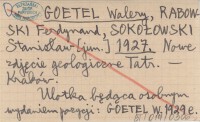 GOETEL Walery, RABOW-
SKI Ferdynand, SOKOŁOWSKI
Stanisław [jun.] 1927. Nowe
zdjęcie geologiczne Tatr. —
Kraków.
Ulotka będąca osobnym
wydaniem pozycji: GOETEL W. 1929 c.